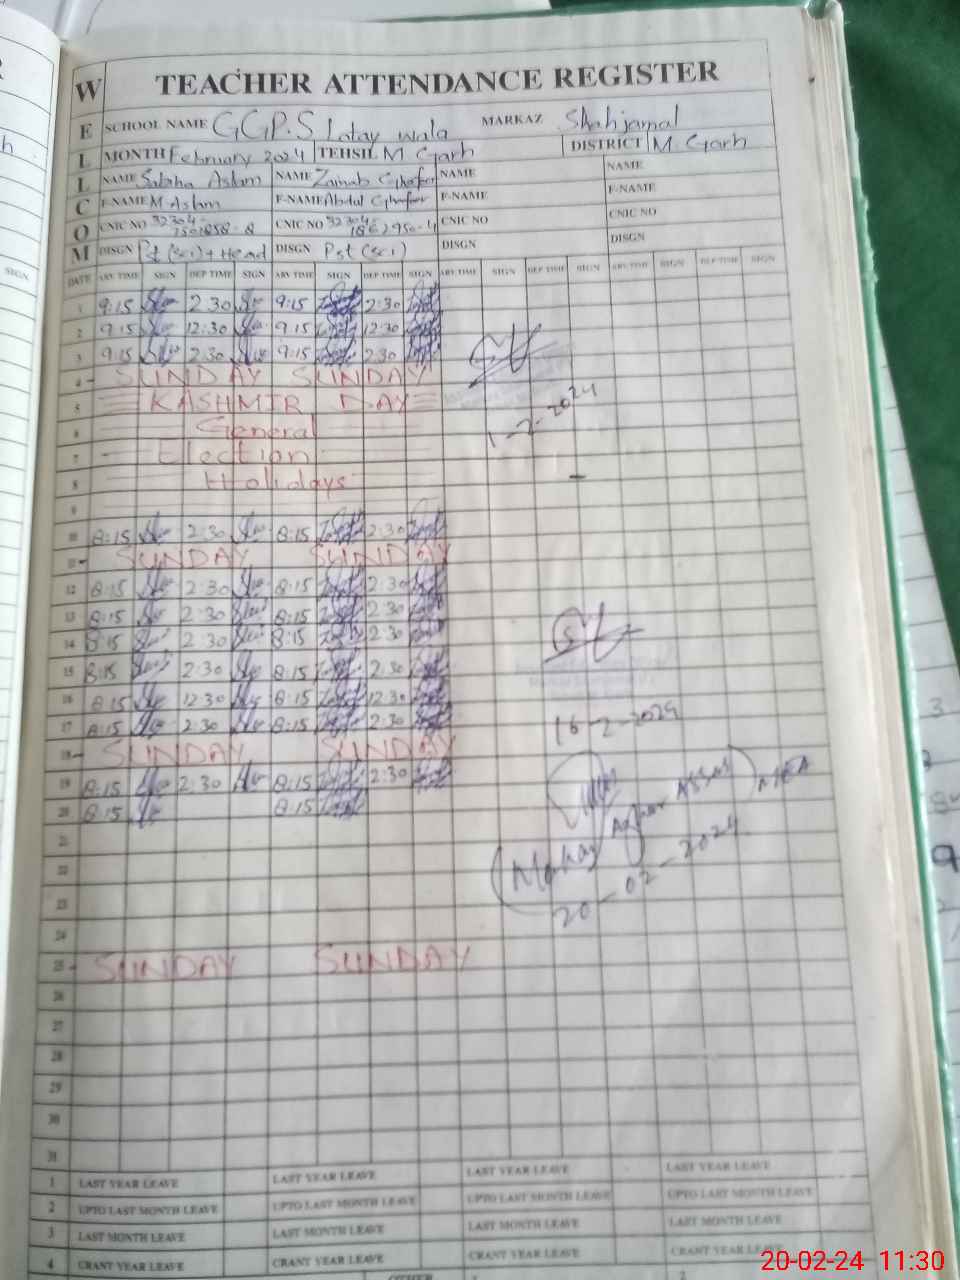 W TEACHER ATTENDANCE REGISTER
E SCHOOL NAME GGPS Latay wala MARKAZ Shahjamal
L MONTH February 2024 TEHSIL M Garh DISTRICT M. Garh
L NAME Sabiha Aslam NAME Zainab Ghafor NAME NAME
C F-NAME M Aslam F-NAME Abdul Ghafor F-NAME F-NAME
O CNIC NO 32304- CNIC NO 32304- CNIC NO CNIC NO
M DISGN Pst (sci) + Head DISGN Pst (sci) DISGN DISGN
DATE ARV TIME SIGN DEP TIME SIGN ARV TIME SIGN DEP TIME SIGN ARV TIME SIGN DEP TIME SIGN ARV TIME SIGN DEP TIME SIGN
1 9:15 2:30 9:15 2:30
2 9:15 12:30 9:15 12:30
3 9:15 2:30 9:15 2:30
4 - SUNDAY SUNDAY
5 KASHMIR DAY
1-2-2024
6 General
7 Election
8 Holidays
9
10 8:15 2:30 8:15 2:30
11 - SUNDAY SUNDAY
12 8:15 2:30 8:15 2:30
13 8:15 2:30 8:15 2:30
14 8:15 2:30 8:15 2:30
15 8:15 2:30 8:15 2:30
16 8:15 12:30 8:15 12:30
17 8:15 2:30 8:15 2:30
16-2-2024
18 - SUNDAY SUNDAY
19 8:15 2:30 8:15 2:30
20 8:15 8:15
21
22
20-02-2024
23
24
25 - SUNDAY SUNDAY
26
27
28
29
30
31
1 LAST YEAR LEAVE LAST YEAR LEAVE LAST YEAR LEAVE LAST YEAR LEAVE
2 UPTO LAST MONTH LEAVE UPTO LAST MONTH LEAVE UPTO LAST MONTH LEAVE UPTO LAST MONTH LEAVE
3 LAST MONTH LEAVE LAST MONTH LEAVE LAST MONTH LEAVE LAST MONTH LEAVE
4 CRANT YEAR LEAVE CRANT YEAR LEAVE CRANT YEAR LEAVE CRANT YEAR LEAVE
OTHER
20-02-24 11:30